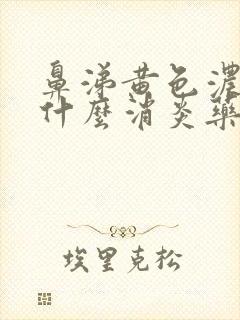 鼻涕黄色浓
什麼消炎藥
埃里克松